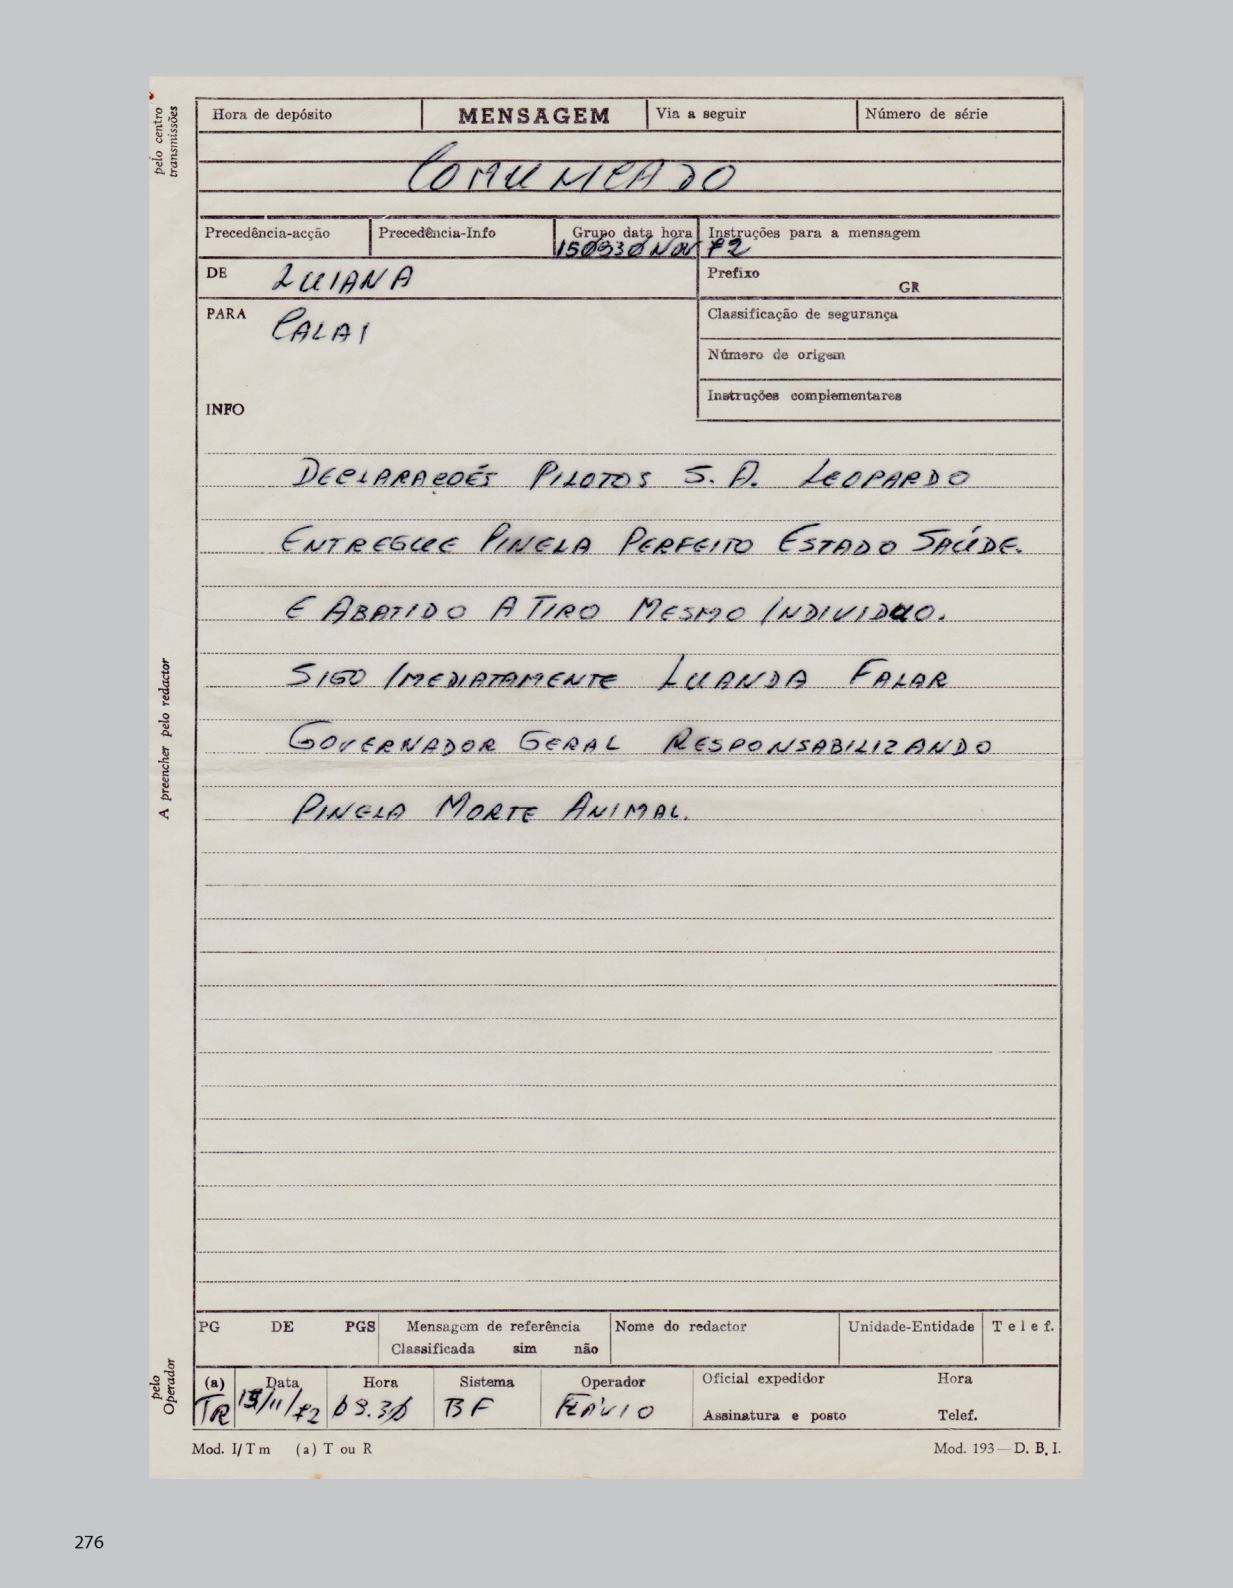 pelo centro
transmissões
Hora de depósito MENSAGEM Via a seguir Número de série
COMUNICADO
Precedência-acção Precedência-Info Grupo data hora Instruções para a mensagem
150930 NOV 72
DE LUIANA Prefixo
GR
PARA CALAI Classificação de segurança
Número de origem
Instruções complementares
INFO
DECLARAÇOÉS PILOTOS S. A. LEOPARDO
ENTREGUE PINELA PERFEITO ESTADO SAÚDE.
E ABATIDO A TIRO MESMO INDIVIDUO.
SIGO IMEDIATAMENTE LUANDA FALAR
GOVERNADOR GERAL RESPONSABILIZANDO
PINELA MORTE ANIMAL.
A preencher pelo redactor
PG DE PGS Mensagem de referência Nome do redactor Unidade-Entidade Telef.
Classificada sim não
pelo
Operador
(a) Data Hora Sistema Operador Oficial expedidor Hora
TR 15/11/72 09.30 BF FLÁVIO Assinatura e posto Telef.
Mod. I/Tm (a) T ou R Mod. 193 — D. B. I.
276